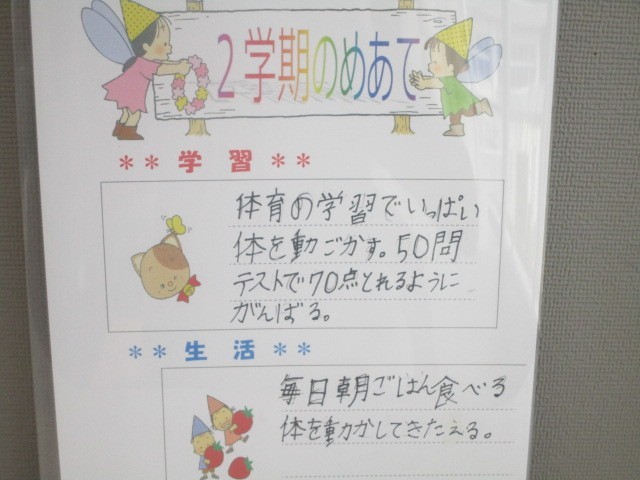 2学期のめあて
** 学習 **
体育の学習でいっぱい
体を動ごかす。50問
テストで70点とれるように
がんばる。
** 生活 **
毎日朝ごはん食べる
体を動かしてきたえる。